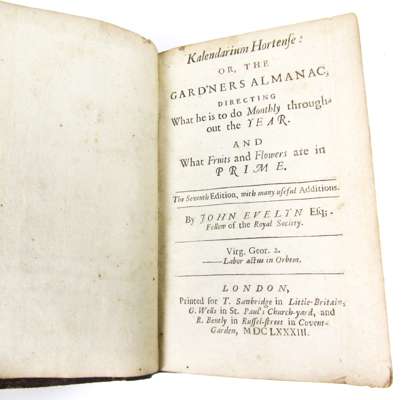 Kalendarium Hortense:
OR, THE
GARD'NERS ALMANAC,
DIRECTING
What he is to do Monthly through-
out the YEAR.
AND
What Fruits and Flowers are in
PRIME.
The Seventh Edition, with many useful Additions.
By JOHN EVELYN Esq;
Fellow of the Royal Society.
Virg. Geor. 2.
——Labor actus in Orbem.
LONDON,
Printed for T. Sawbridge in Little-Britain,
G. Wells in St. Paul's Church-yard, and
R. Bently in Russel-street in Covent-
Garden, MDCLXXXIII.